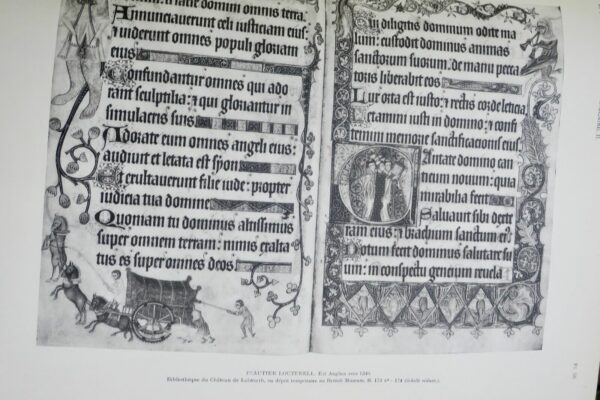 Annunciauerunt celi iustitiam eius:
uiderunt omnes populi gloriam
eius
Confundantur omnes qui ado
rant sculptilia: et qui gloriantur in
simulacris suis.
Adorate eum omnes angeli eius:
audiuit et letata est syon
Et exultauerunt filie iude: propter
iudicia tua domine
Quoniam tu dominus altissimus
super omnem terram: nimis exalta
tus es super omnes deos.
Qui diligitis dominum odite ma
lum: custodit dominus animas
sanctorum suorum: de manu pecca
toris liberabit eos
Lux orta est iusto: et rectis corde leticia
Letamini iusti in domino: et confi
temini memorie sanctificationis eius
Cantate domino can
ticum nouum: quia
mirabilia fecit
Saluauit sibi dexte
ra eius: et brachium sanctum
Notum fecit dominus salutare su
um: in conspectu gencium reuela
PSAUTIER LOUTERELL. Est Anglien vers 1340.
Bibliothèque du Château de Lulworth, en dépôt temporaire au British Museum, ff. 173 vº - 174 (échelle réduite).